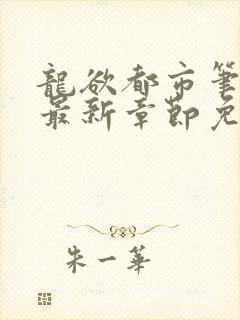 龍欲都市筆
最新章節免
朱一華